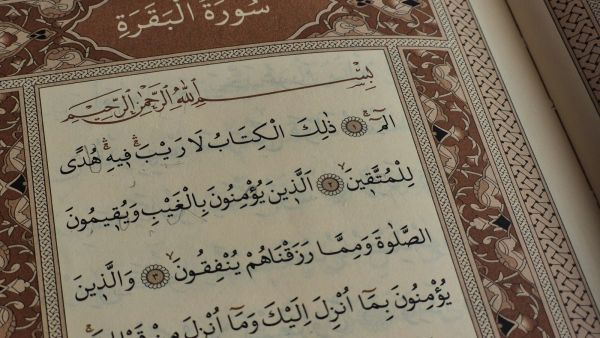 سُورَةُ الْبَقَرَةِ
بِسْمِ اللّٰهِ الرَّحْمٰنِ الرَّحِيمِ
الٓمٓ ۚ ﴿١﴾ ذٰلِكَ الْكِتَابُ لَا رَيْبَ ۛ فِيهِ ۛ هُدًى
لِلْمُتَّقِينَ ۙ ﴿٢﴾ اَلَّذِينَ يُؤْمِنُونَ بِالْغَيْبِ وَيُقِيمُونَ
الصَّلٰوةَ وَمِمَّا رَزَقْنَاهُمْ يُنْفِقُونَ ۙ ﴿٣﴾ وَالَّذِينَ
يُؤْمِنُونَ بِمَٓا اُنْزِلَ اِلَيْكَ وَمَٓا اُنْزِلَ مِنْ قَبْلِكَ ۚ